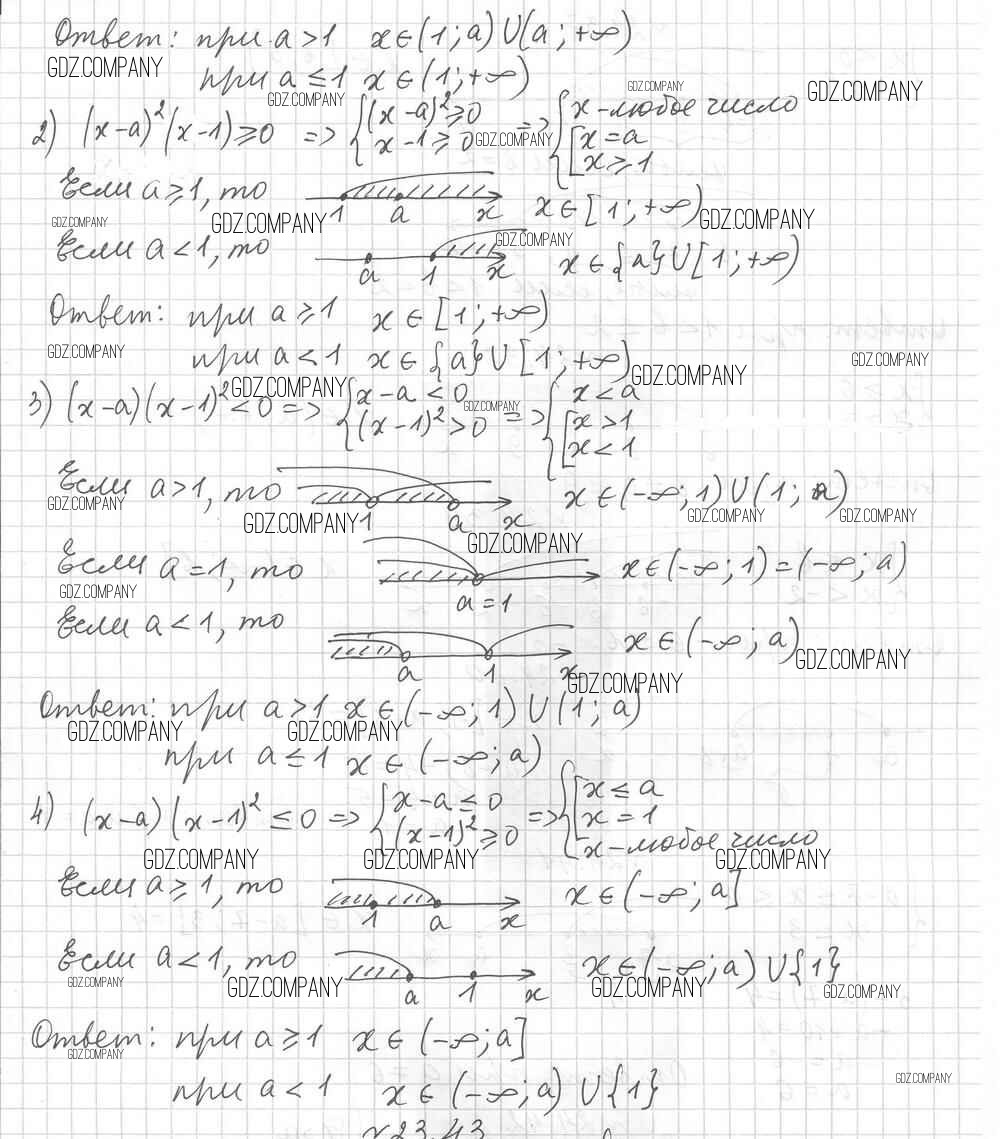 Ответ: при a>1 x∈(1;a)∪(a;+∞)
GDZ.COMPANY
при a≤1 x∈(1;+∞)
GDZ.COMPANY GDZ.COMPANY GDZ.COMPANY
2) (x-a)²(x-1)≥0 => {(x-a)²≥0 => {x-любое число
x-1≥0 GDZ.COMPANY [x=a
x≥1
Если a≥1, то 1 a x x∈[1;+∞)
GDZ.COMPANY GDZ.COMPANY GDZ.COMPANY
Если a<1, то a 1 x x∈{a}∪[1;+∞)
GDZ.COMPANY
Ответ: при a≥1 x∈[1;+∞)
GDZ.COMPANY при a<1 x∈{a}∪[1;+∞) GDZ.COMPANY
GDZ.COMPANY GDZ.COMPANY
3) (x-a)(x-1)²<0 => {x-a<0 => {x<a
(x-1)²>0 GDZ.COMPANY [x>1
x<1
Если a>1, то 1 a x x∈(-∞;1)∪(1;a)
GDZ.COMPANY GDZ.COMPANY GDZ.COMPANY GDZ.COMPANY
GDZ.COMPANY
Если a=1, то a=1 x∈(-∞;1)=(-∞;a)
GDZ.COMPANY
Если a<1, то a 1 x x∈(-∞;a)
GDZ.COMPANY
GDZ.COMPANY
Ответ: при a>1 x∈(-∞;1)∪(1;a)
GDZ.COMPANY GDZ.COMPANY
при a≤1 x∈(-∞;a)
4) (x-a)(x-1)²≤0 => {x-a≤0 => {[x≤a
(x-1)²≥0 x=1
x-любое число
GDZ.COMPANY GDZ.COMPANY GDZ.COMPANY
Если a≥1, то 1 a x x∈(-∞;a]
Если a<1, то a 1 x x∈(-∞;a)∪{1}
GDZ.COMPANY GDZ.COMPANY GDZ.COMPANY GDZ.COMPANY
Ответ: при a≥1 x∈(-∞;a]
GDZ.COMPANY
при a<1 x∈(-∞;a)∪{1}
GDZ.COMPANY